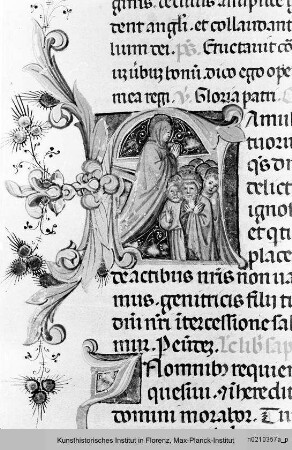 ginis. decimus
dent angli. et collaudant
lium dei. ps. Eructavit cor
verbum bonum. dico ego ope
mea regi. v. Gloria patri.
Famul
tuorum
qs dn
delict
ignos
et qui
place
de actibus nris non va
mus. genitricis filij tu
dni nri intercessione sal
mur. P eudez. Lc lib sap
In omnibz requiem
quesivi. et in heredit
domini morabor. Tūc
Kunsthistorisches Institut in Florenz, Max-Planck-Institut
n0210367a_p